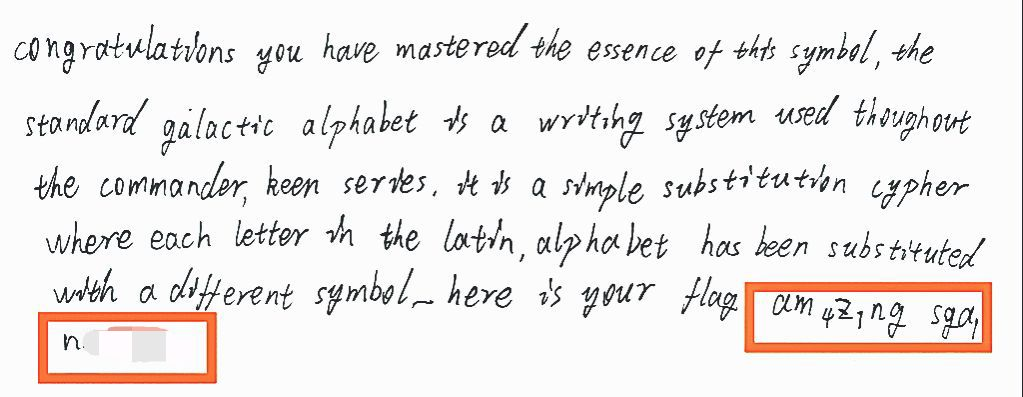 congratulations you have mastered the essence of this symbol, the
standard galactic alphabet is a writing system used thoughout
the commander, keen series. it is a simple substitution cypher
where each letter in the latin, alphabet has been substituted
with a different symbol_ here is your flag am4z1ng sga1
n